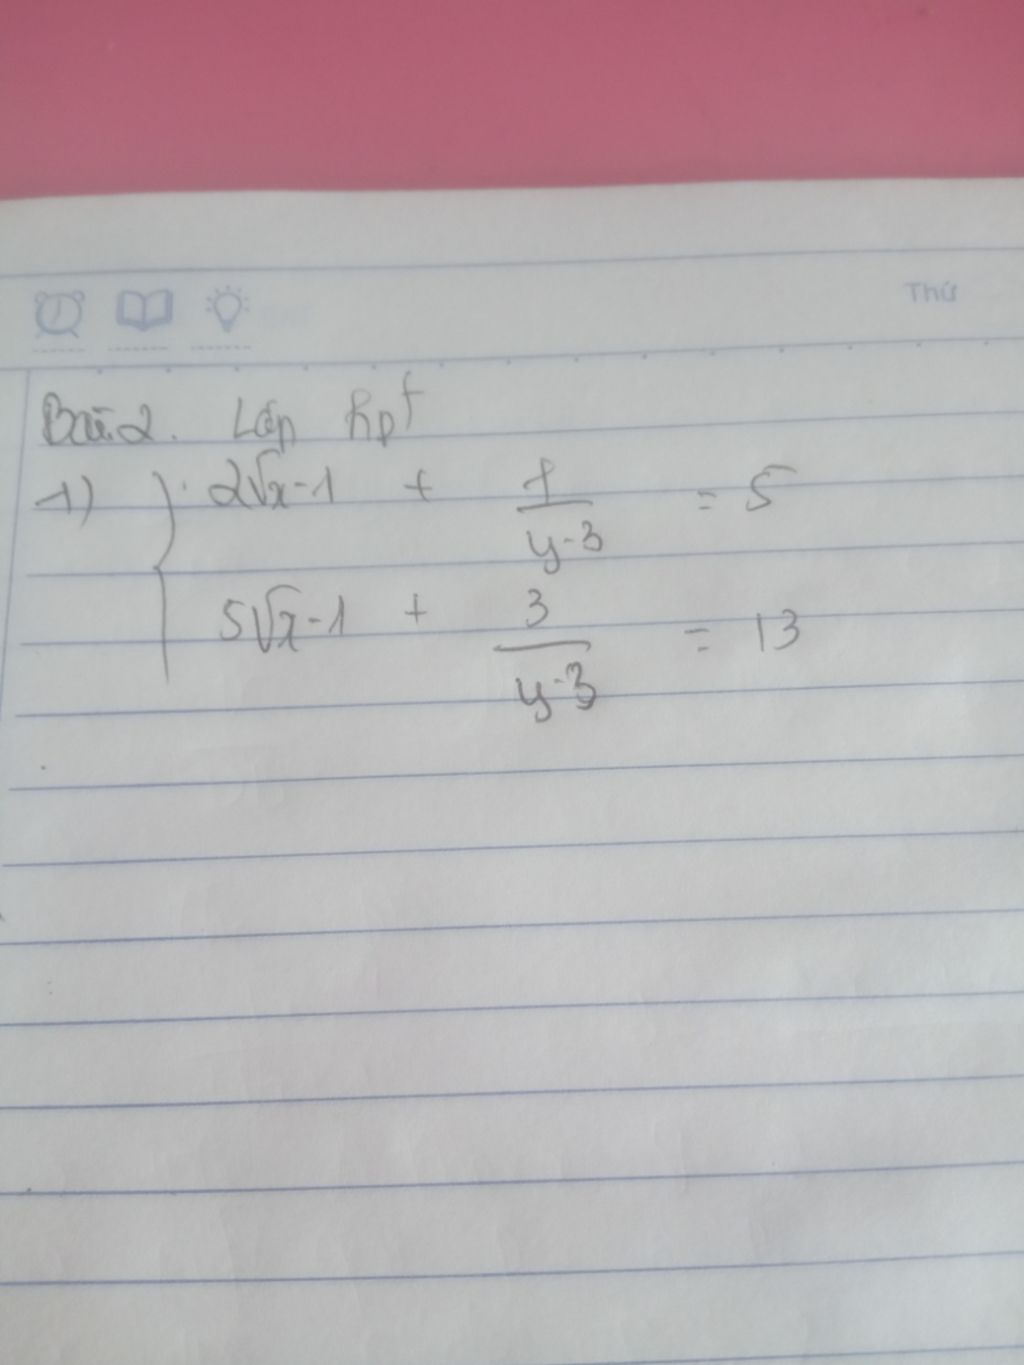 Thứ
Bài 2. Lập hpt
1) { 2√x-1 + 1/y-3 = 5
5√x-1 + 3/y-3 = 13